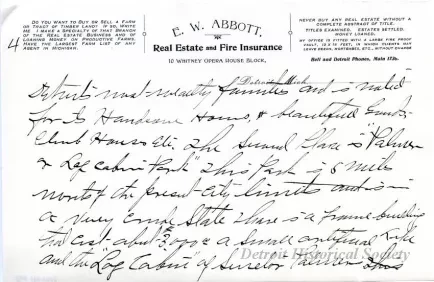 DO YOU WANT TO BUY OR SELL A FARM
OR TRACT OF TIMBER LAND? IF SO, WRITE
ME. I MAKE A SPECIALTY OF THAT BRANCH
OF THE REAL ESTATE BUSINESS AND OF
LOANING MONEY ON PRODUCTIVE FARMS.
HAVE THE LARGEST FARM LIST OF ANY
AGENT IN MICHIGAN.
4
E. W. ABBOTT,
Real Estate and Fire Insurance
10 WHITNEY OPERA HOUSE BLOCK,
NEVER BUY ANY REAL ESTATE WITHOUT A
COMPLETE ABSTRACT OF TITLE.
TITLES EXAMINED. ESTATES SETTLED.
MONEY LOANED.
MY OFFICE IS FITTED WITH A LARGE FIRE PROOF
VAULT, IN WHICH CLIENTS MAY
LEAVE DEEDS, MORTGAGES, ETC., WITHOUT CHARGE
Bell and Detroit Phones, Main
Detroit, Mich
Detroits most wealthy families and is noted
for its Handsome Homes, & beautifull
Club House Etc. The Second Place is "Palmer
or Log Cabin Park" This Park is 6 miles
north of the present City limits and is in
a very Crude State there is a frame building
that cost about 3,000 & a small artificial Lake
and the "Log Cabin" of Senator Palmer
Detroit Historical Society